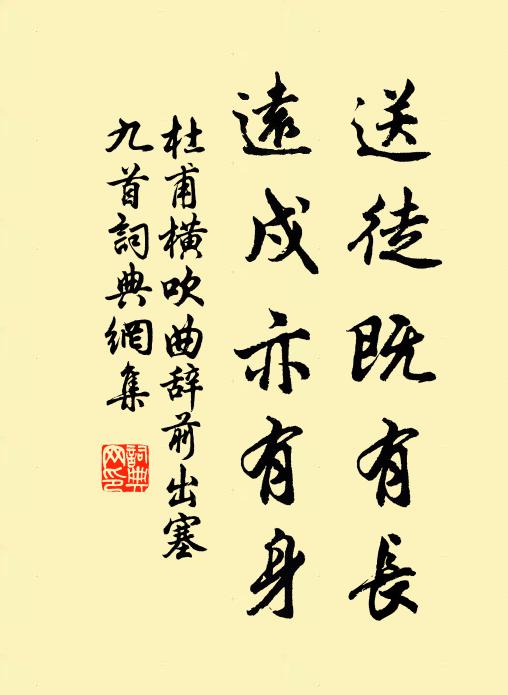 送徒既有長
遠戍亦有身
杜甫橫吹曲辞前出塞
九首詞典網集
詞典
网印